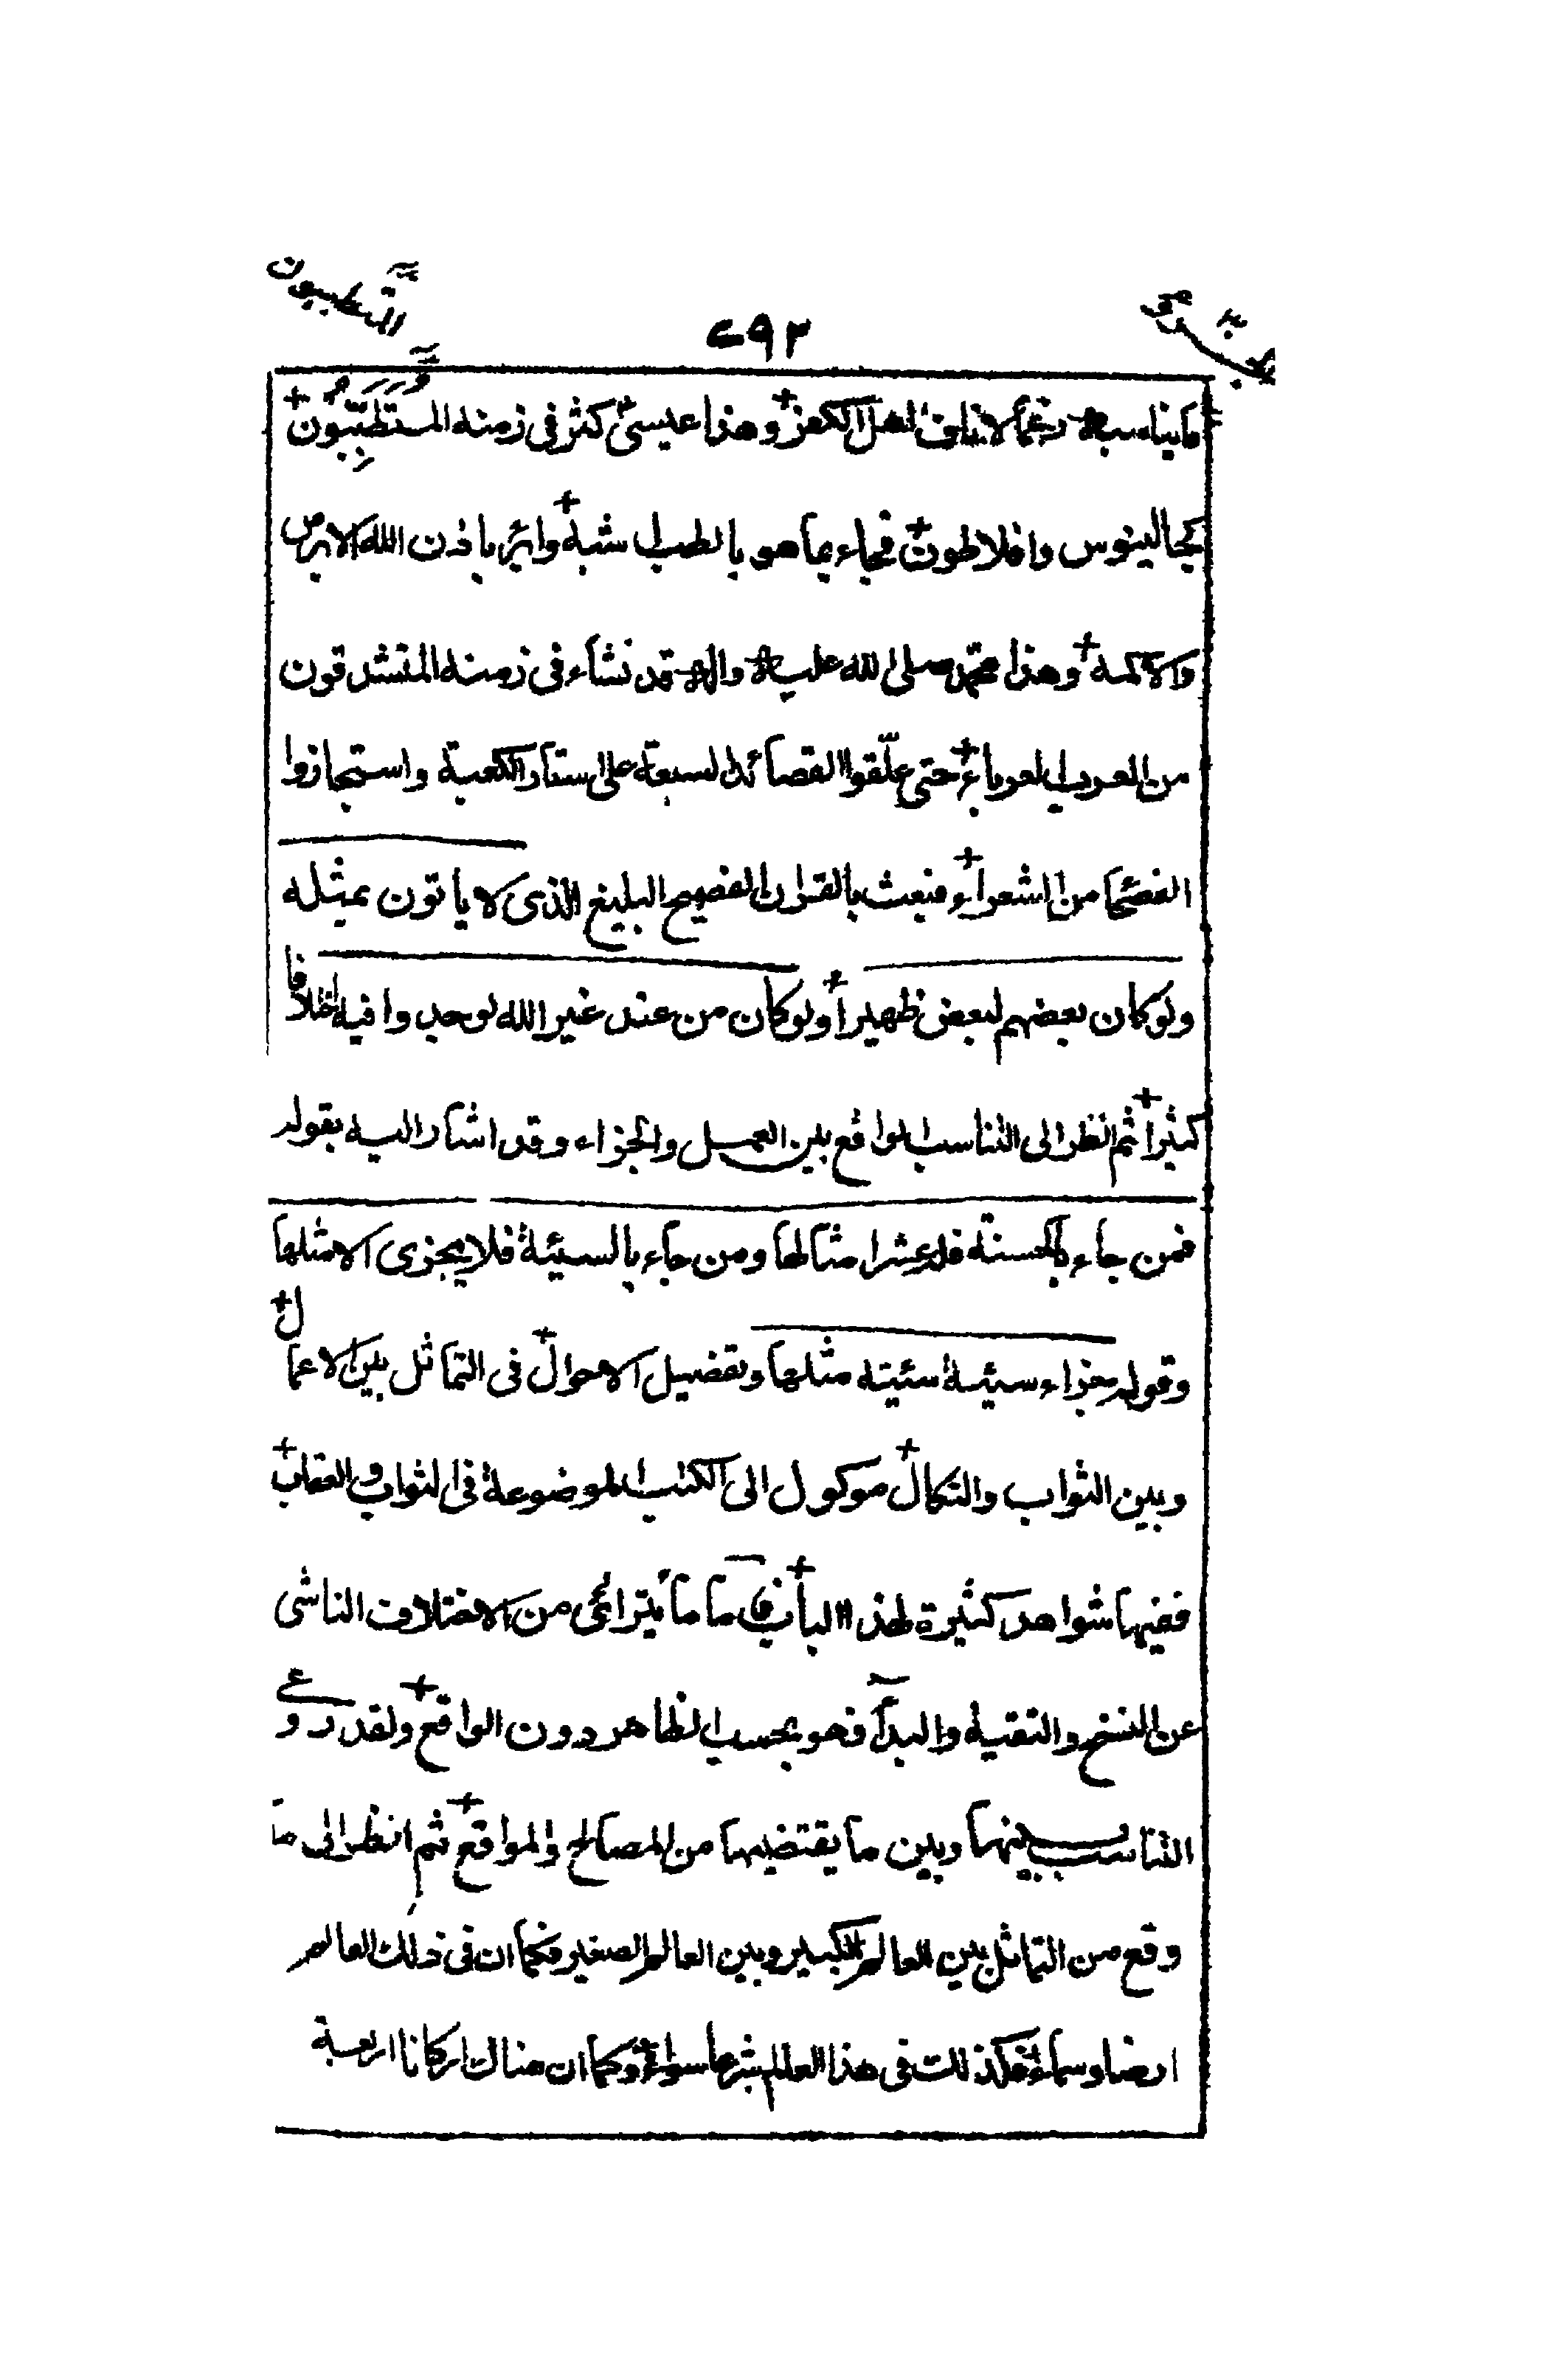 المتطببون
٢٩٢
ما يناسبه رغماً لاناف اهل الكفر وهذا عيسى كثر في زمنه المُستَطَبِّبُون
كجالينوس وافلاطون فجاء بما هو بالطب اشبه وابرء باذن الله الابرص
والاكمه وهذا محمد صلى الله عليه واله قد نشاء في زمنه المتشدقون
من العرب العرباء حتى علّقوا القصائد السبعة على استار الكعبة واستجازوا
الفصحا من الشعراء فبعث بالقران الفصيح البليغ الذى لا ياتون بمثله
ولو كان بعضهم لبعض ظهيرا ولو كان من عند غير الله لوجدوا فيه اختلافا
كثيرا ثم انظر الى التناسب الواقع بين العمل والجزاء وقد اشار اليه بقوله
فمن جاء بالحسنة فله عشر امثالها ومن جاء بالسيئة فلا يجزى الا مثلها
وقوله جزاء سيئة سيئة مثلها وتفصيل الاحوال في التماثل بين الاعمال
وبين الثواب والنكال موكول الى الكتب الموضوعة في الثواب والعقاب
ففيها شواهد كثيرة لهذا الباب فاما ما يترائى من الاختلاف الناشى
عن النسخ والتقية والبدآ فهو بحسب الظاهر دون الواقع ولقد روعى
التناسب بينها وبين ما يقتضيها من المصالح والمواقع ثم انظر الى ما
وقع من التماثل بين العالم الكبير وبين العالم الصغير فكما ان في ذلك العالم
ارضا وسماء فكذلك في هذا العالم شرعا سواء وكما ان هناك اركانا اربعة